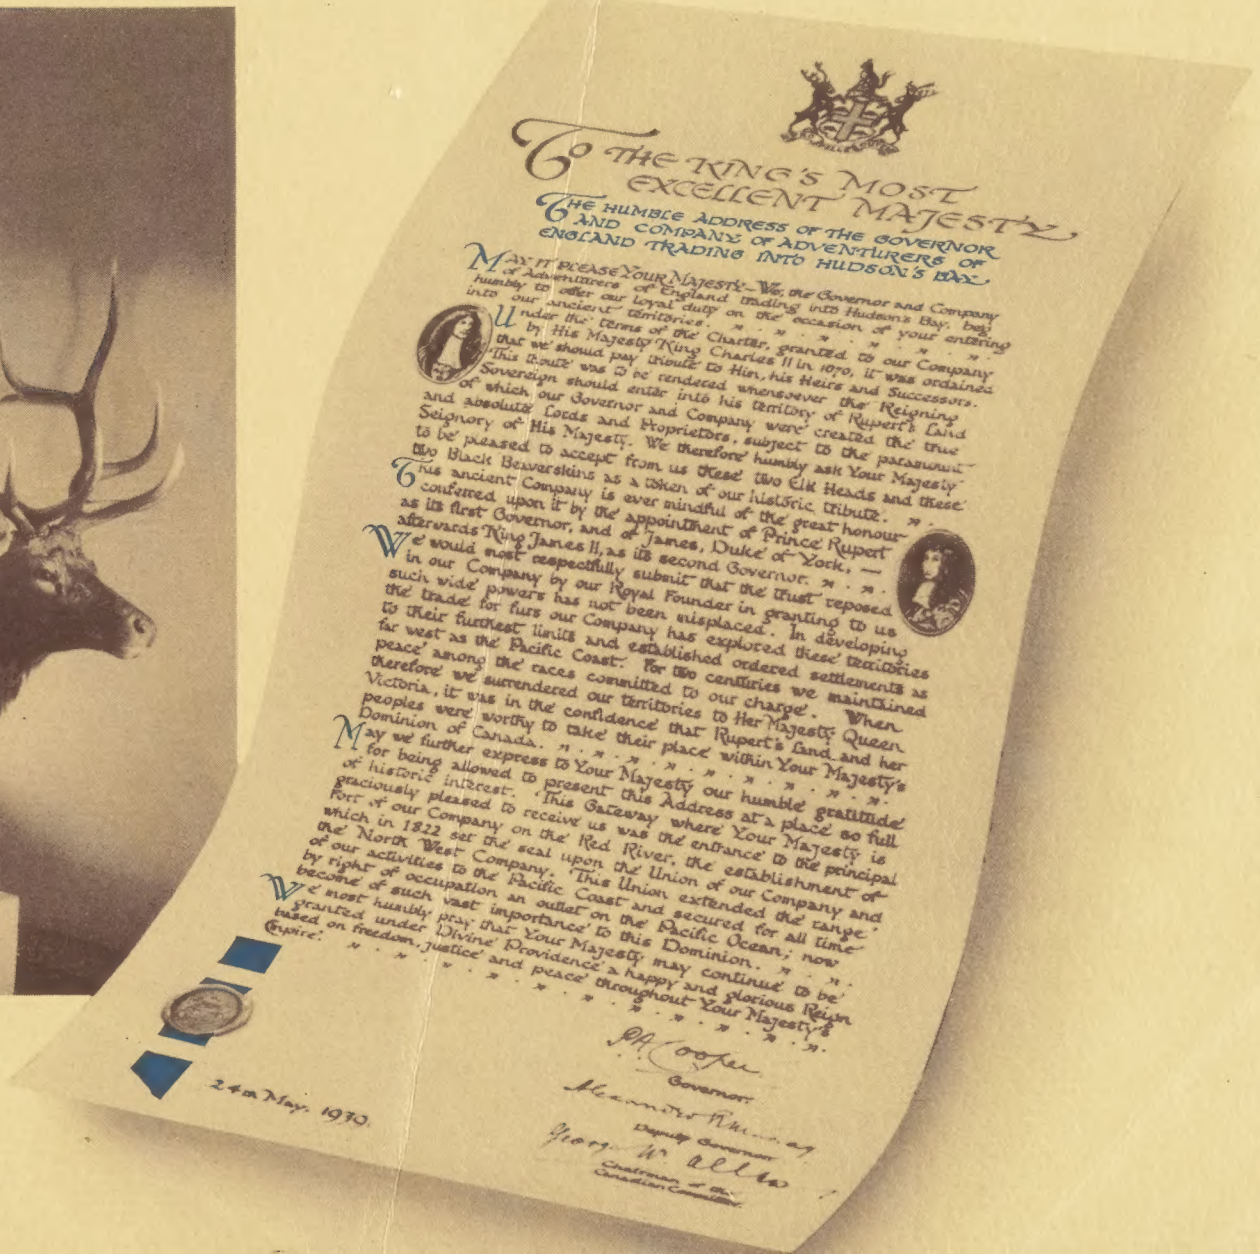 TO THE KING'S MOST
EXCELLENT MAJESTY
THE HUMBLE ADDRESS OF THE GOVERNOR
AND COMPANY OF ADVENTURERS OF
ENGLAND TRADING INTO HUDSON'S BAY
MAY IT PLEASE YOUR MAJESTY – We, the Governor and Company
of Adventurers of England trading into Hudson's Bay, beg
humbly to offer our loyal duty on the occasion of your entering
into our ancient territories.
Under the terms of the Charter, granted to our Company
by His Majesty King Charles II in 1670, it was ordained
that we should pay tribute to Him, his Heirs and Successors.
This tribute was to be rendered whensoever the Reigning
Sovereign should enter into his territory of Rupert's Land
of which our Governor and Company were created the true
and absolute Lords and Proprietors, subject to the paramount
Seignory of His Majesty. We therefore humbly ask Your Majesty
to be pleased to accept from us these two Elk Heads and these
two Black Beaverskins as a token of our historic tribute.
This ancient Company is ever mindful of the great honour
conferred upon it by the appointment of Prince Rupert
as its first Governor, and of James, Duke of York, —
afterwards King James II, as its second Governor.
We would most respectfully submit that the trust reposed
in our Company by our Royal Founder in granting to us
such wide powers has not been misplaced. In developing
the trade for furs our Company has explored these territories
to their furthest limits and established ordered settlements as
far west as the Pacific Coast. For two centuries we maintained
peace among the races committed to our charge. When
therefore we surrendered our territories to Her Majesty Queen
Victoria, it was in the confidence that Rupert's Land and her
peoples were worthy to take their place within Your Majesty's
Dominion of Canada.
May we further express to Your Majesty our humble gratitude
for being allowed to present this Address at a place so full
of historic interest. This Gateway where Your Majesty is
graciously pleased to receive us was the entrance to the principal
Fort of our Company on the Red River, the establishment of
which in 1822 set the seal upon the Union of our Company and
the North West Company. This Union extended the range
of our activities to the Pacific Coast and secured for all time
by right of occupation an outlet on the Pacific Ocean; now
become of such vast importance to this Dominion.
We most humbly pray that Your Majesty may continue to be
granted under Divine Providence a happy and glorious Reign
based on freedom, justice and peace throughout Your Majesty's
Empire.
P A Cooper
Governor.
Alexander
Deputy Governor
George W. Allan
Chairman of the
Canadian Committee
24th May, 1939.